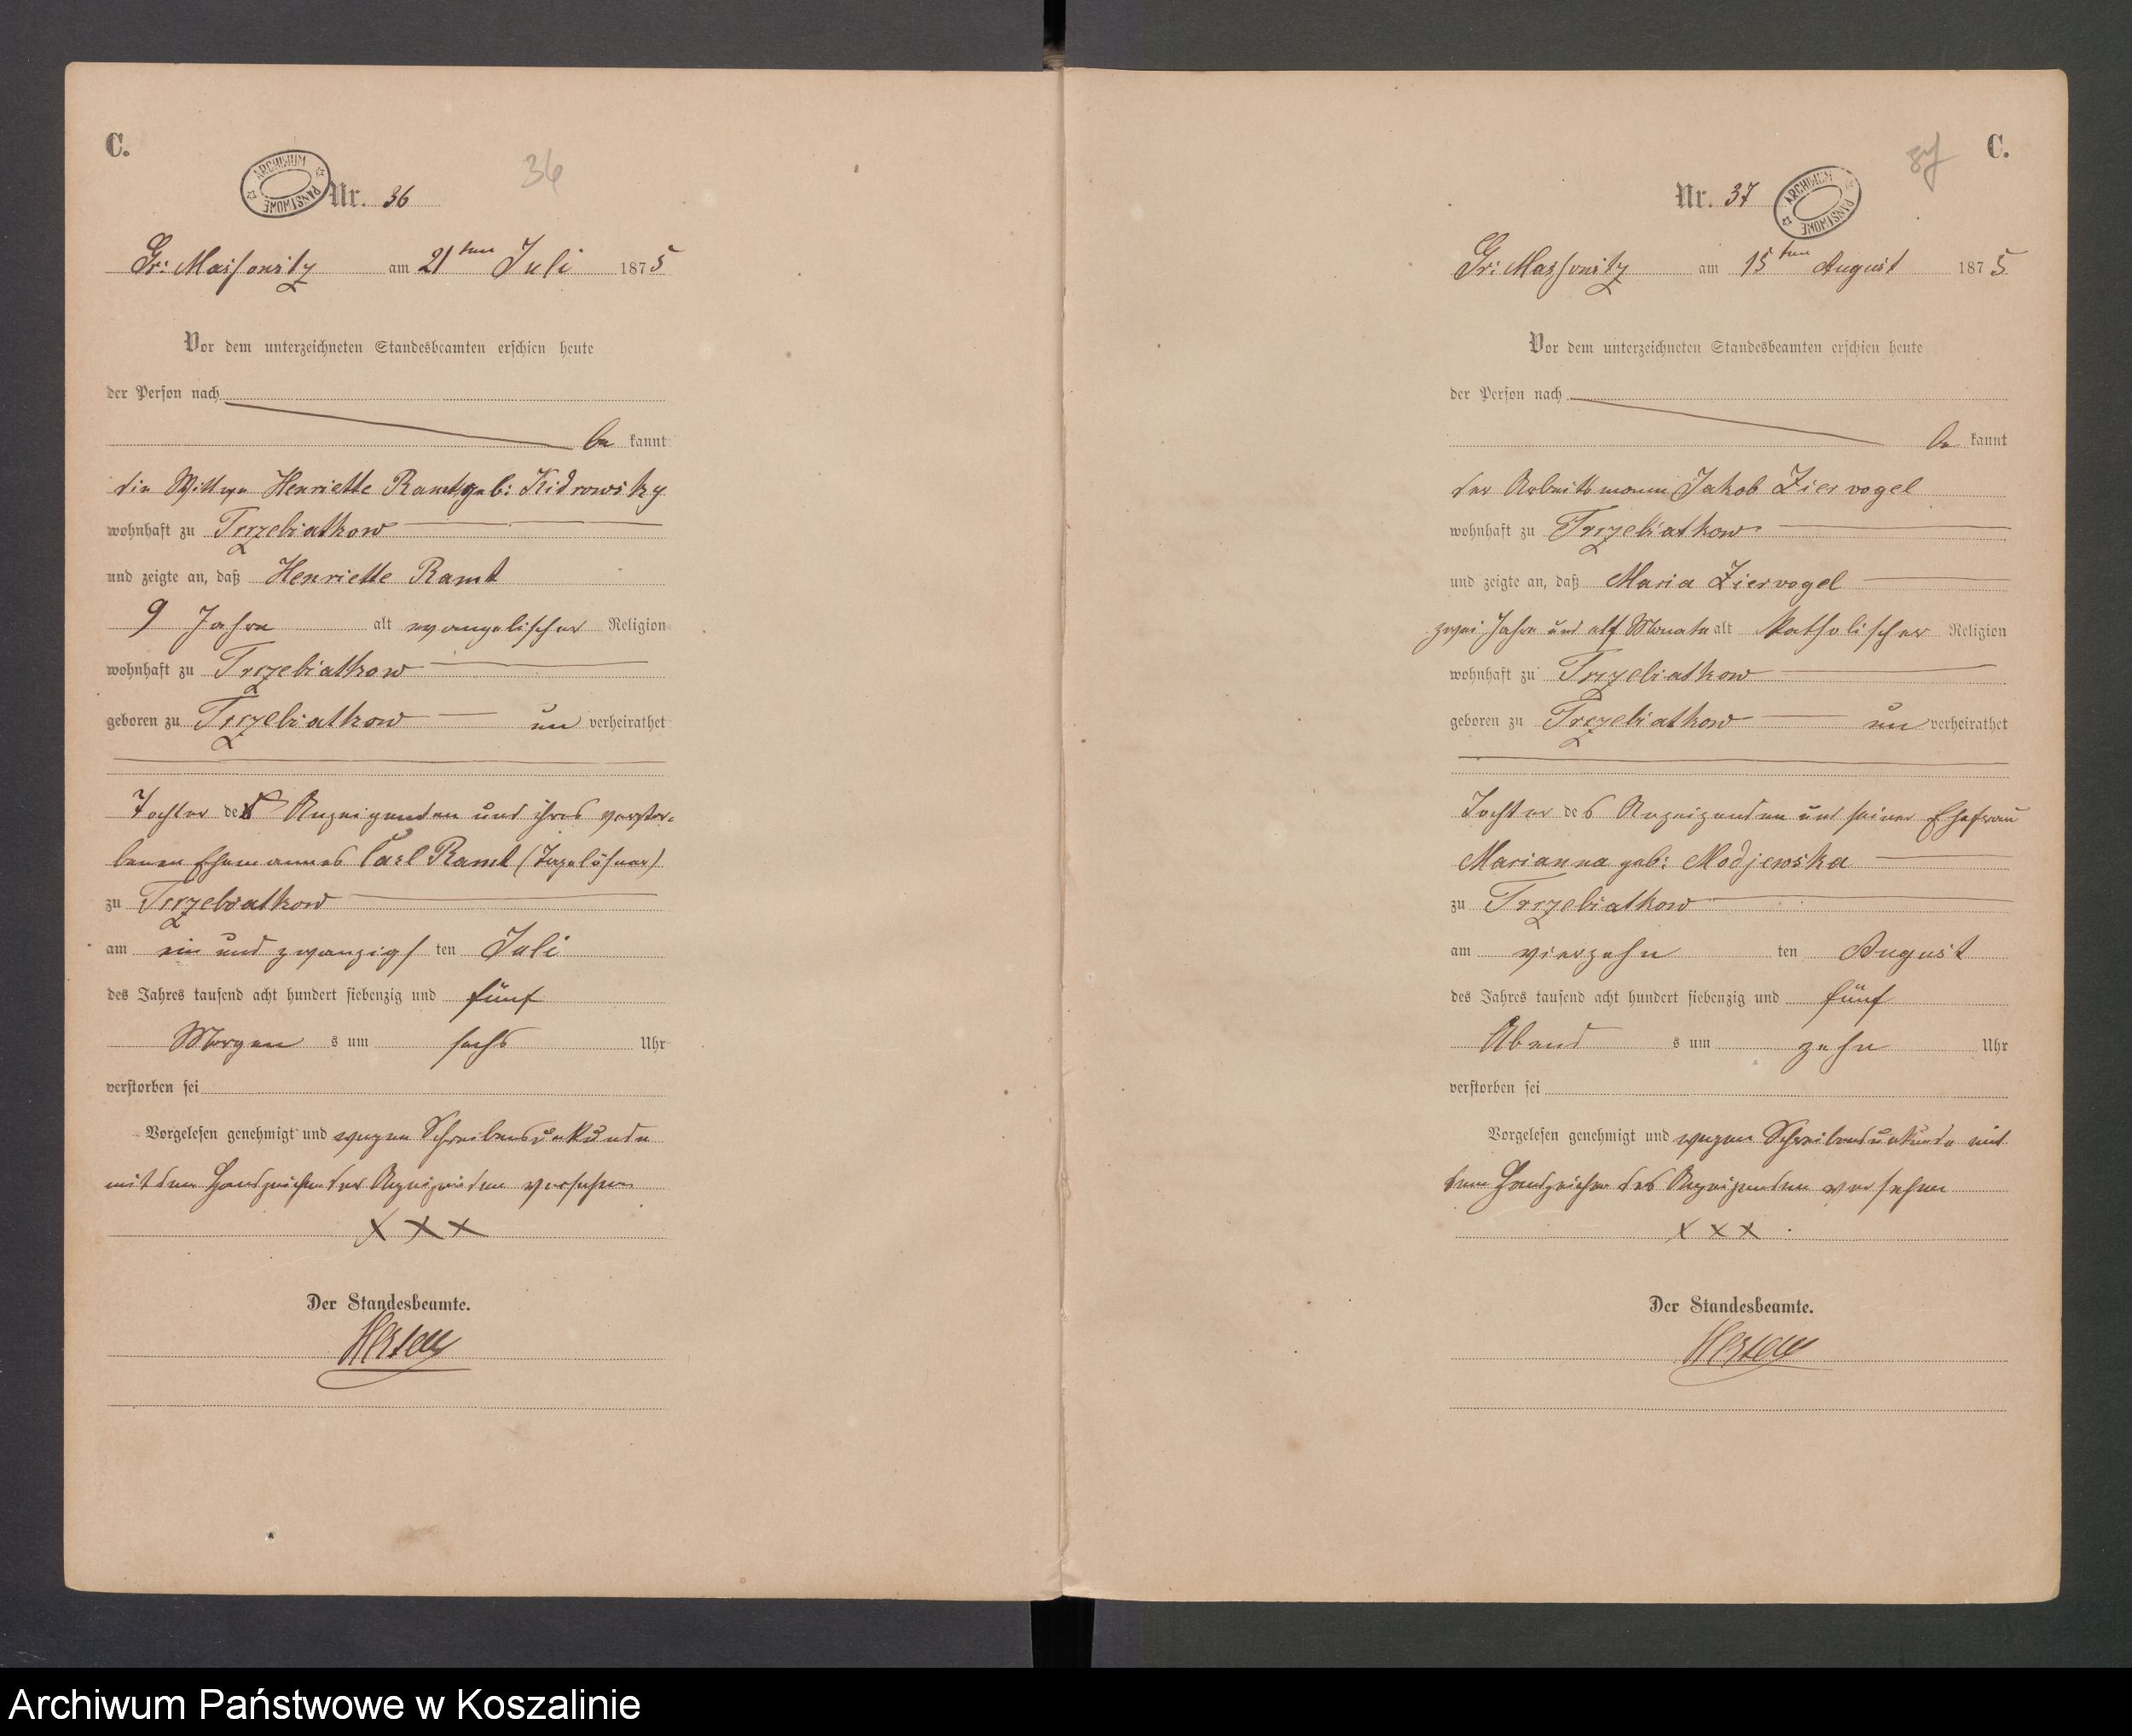 C.
36
ARCHIWUM PAŃSTWOWE
Nr. 36
Gr: Massowitz am 21ten Juli 1875
Vor dem unterzeichneten Standesbeamten erschien heute
der Person nach
be kannt
die Wittwe Henriette Ramt geb: Kidrowsky
wohnhaft zu Trzebiatkow
und zeigte an, daß Henriette Ramt
9 Jahre alt evangelischer Religion
wohnhaft zu Trzebiatkow
geboren zu Trzebiatkow un verheirathet
Tochter der Anzeigenden und ihres verstor-
benen Ehemannes Carl Ramt (Tagelöhner)
zu Trzebiatkow
am ein und zwanzigs ten Juli
des Jahres tausend acht hundert siebenzig und fünf
Morgen s um sechs Uhr
verstorben sei
Vorgelesen genehmigt und wegen Schreibensunkunde
mit dem Handzeichen der Anzeigenden versehen
X X X
Der Standesbeamte.
C.
37
Nr. 37
ARCHIWUM PAŃSTWOWE
Gr: Massowitz am 15ten August 1875
Vor dem unterzeichneten Standesbeamten erschien heute
der Person nach
be kannt
der Arbeitsmann Jakob Ziervogel
wohnhaft zu Trzebiatkow
und zeigte an, daß Maria Ziervogel
zwei Jahre und elf Monate alt katholischer Religion
wohnhaft zu Trzebiatkow
geboren zu Trzebiatkow un verheirathet
Tochter des Anzeigenden und seiner Ehefrau
Marianna geb: Modjewska
zu Trzebiatkow
am vierzehn ten August
des Jahres tausend acht hundert siebenzig und fünf
Abend s um zehn Uhr
verstorben sei
Vorgelesen genehmigt und wegen Schreibensunkunde mit
dem Handzeichen des Anzeigenden versehen
X X X
Der Standesbeamte.
Archiwum Państwowe w Koszalinie